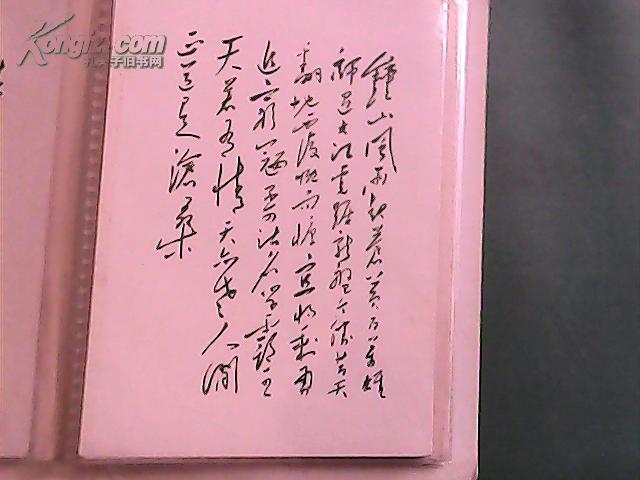 鐘山風雨起蒼黄百万雄
師過大江虎踞龍盤今勝昔天
翻地覆慨而慷宜將剩勇
追窮寇不可沽名学霸王
天若有情天亦老人间
正道是滄桑
Kongfz.com
孔夫子旧书网